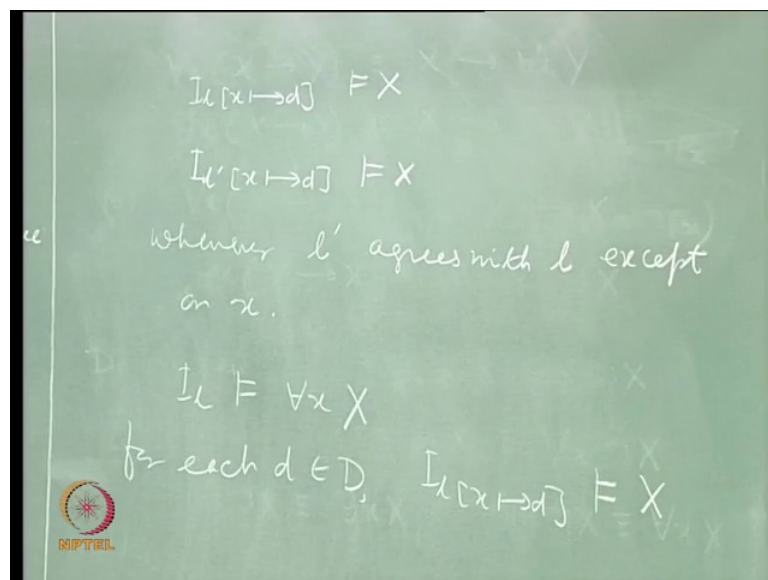 I_l[x↦d] ⊨ X
I_l'[x↦d] ⊨ X
whenever l' agrees with l except
on x.
I_l ⊨ ∀x X
for each d ∈ D, I_l[x↦d] ⊨ X
NPTEL